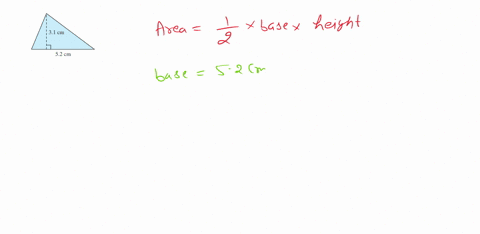 Area = 1/2 × base × height
3.1 cm
5.2 cm
base = 5.2 cm